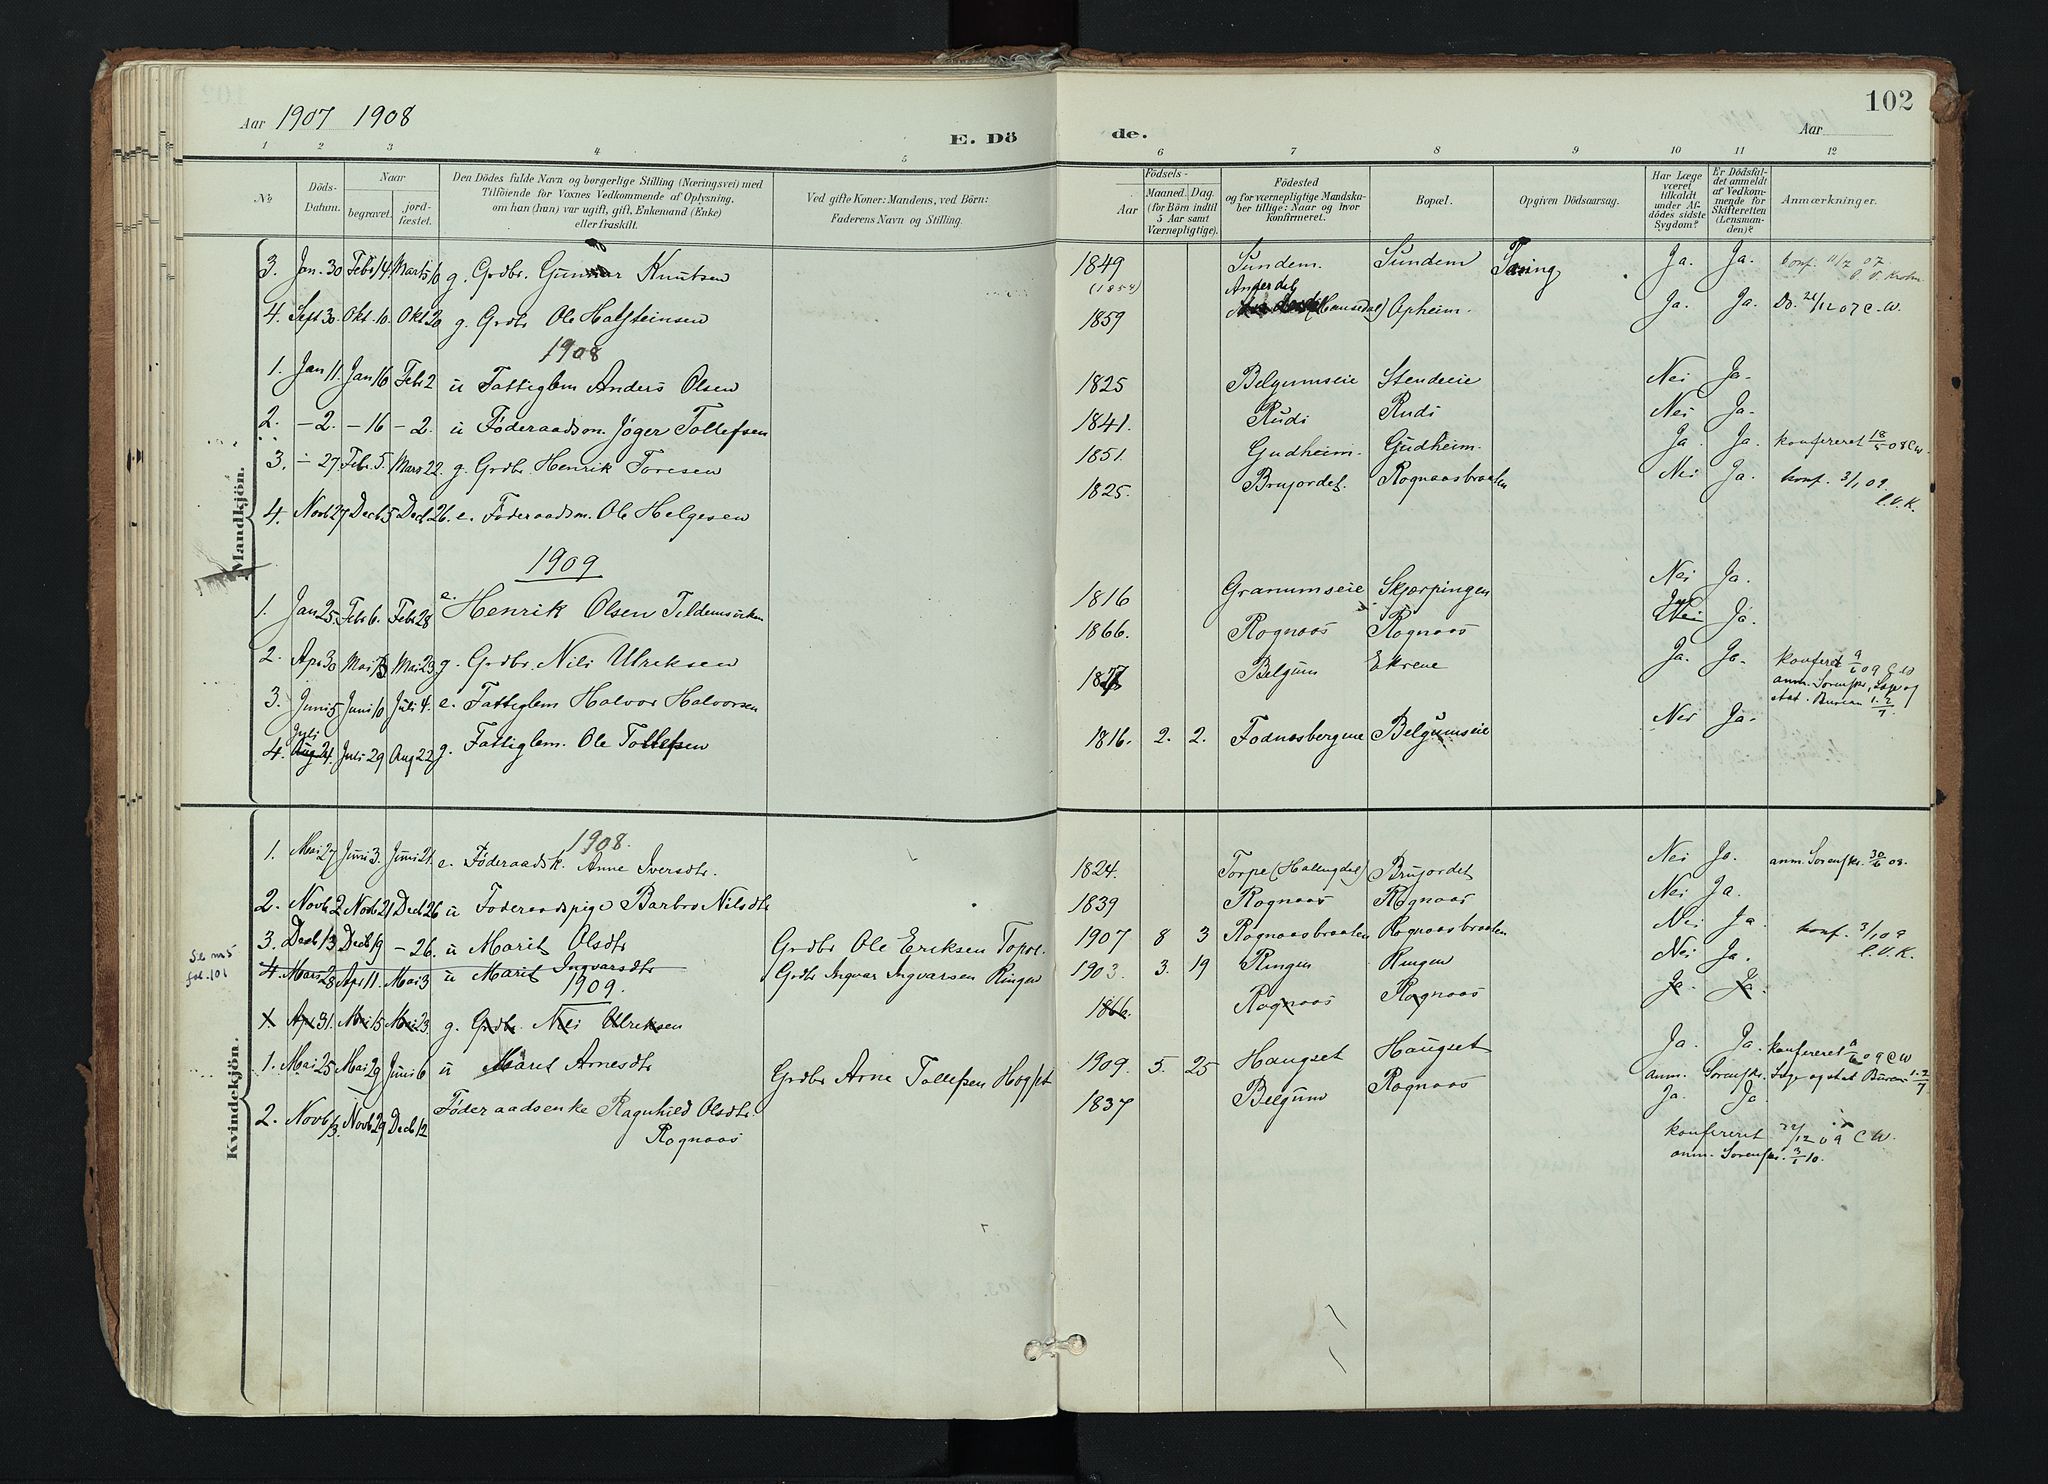 102
Aar 1907 1908
E. Dö de.
Aar
1 2 3 4 5 6 7 8 9 10 11 12
No.
Döds-Datum.
Naar
begravet.
jord-fæstet.
Den Dödes fulde Navn og borgerlige Stilling (Næringsvei) med
Tilföiende for Voxnes Vedkommende af Oplysning,
om han (hun) var ugift, gift, Enkemand (Enke)
eller fraskilt.
Ved gifte Koner: Mandens, ved Börn:
Faderens Navn og Stilling.
Födsels-
Aar
Maaned. Dag.
(for Börn indtil
5 Aar samt
Værnepligtige).
Födested
og for værnepligtige Mandska-
ber tillige: Naar og hvor
konfirmeret.
Bopæl.
Opgiven Dödsaarsag.
Har Læge
været
tilkaldt
under Af-
dödes sidste
Sygdom?
Er Dödsfal-
det anmeldt
af Vedkom-
mende for
Skifteretten
(Lensman-
den)?
Anmærkninger.
Mandkjön.
3. Jan. 30 Febr 14 Marts 10 g. Grdbr. Gunnar Knutsen 1849 (1854) Sundem. Sundem Tæring Ja. Ja. konf. 11/2 07.
4. Sept 30 Okt. 10 Okt 20 g. Grdbr Ole Halsteinsen 1859 (Hemsedal) Opheim. Ja. Ja. Do. 21/12 07 C. W.
1908
1. Jan 11. Jan 16 Feb 2 u Fattiglem Anders Olsen 1825 Belgumseie Stendeeie Nei Ja.
2. - 2. - 16 - 2. u Föderaadsm. Jöger Tollefsen 1841. Rudi Rudi Nei Ja.
3. - 27 Feb. 5. Mars 22. g. Grdbr Henrik Toresen 1851. Gudheim. Gudheim. Ja. Ja. konfereret 18/5 08 CW.
4. Novb 27 Decb 5 Decb 26. e. Föderaadsm. Ole Helgesen 1825. Brujordet. Rognaasbraaten Nei Ja. konf. 3/1 09. C.V.K.
1909
1. Jan 25. Feb 6. Febr 28 e. Henrik Olsen 1816 Granumseie Skjærpingen Nei Ja.
2. Apr 30 Mai 15 Mai 23 g. Grdbr. Nils Ulriksen 1866. Rognaas Rognaas Ja Ja.
3. Juni 5 Juni 10 Juli 4. e. Fattiglem Halvor Halvorsen Belgum Ekrene Ja. Ja. konferet 9/6 09 C W
anm. Sorenskr., Læge og
stat. Bureau 1-2/7
4. Juli 24. Juli 29 Aug 22 g. Fattiglem. Ole Tollefsen 1816. 2. 2. Fodnæsbergene Belgumseie Nei Ja.
Kvindekjön.
1908.
1. Mai 27 Juni 3. Juni 21. e. Föderaadsk. Anne Iversdtr. 1824. Torpe (Hallingdal) Brujordet Nei Ja. anm. Sorenskr. 30/6 08.
2. Novb 2 Novb 21 Decb 26 u Föderaadspige Barbro Nilsdtr 1839 Rognaas Rognaas Nei Ja.
3. Decb 13 Decb 19 - 26. u Marit Olsdtr Grdbr Ole Eriksen 1907 8 3 Rognaasbraaten Rognaasbraaten Nei Ja konf. 3/1 09 C.V.K.
Se no 5
fol. 101
4. Mars 28 Apr 11. Mai 3 u Marit Ingvarsdtr Grdbr Ingvar Ingvarsen Ringen 1903. 3. 19 Ringen Ringen Nei Ja.
1909.
1. Apr 31. Mai 15 Mai 23 g. Grdbr. Nils Ulriksen 1866. Rognaas Rognaas Ja. Ja.
1. Mai 25 Mai 29 Juni 6 u Marit Arnesdtr Grdbr Arne Tollefsen Hogset 1909 5. 25 Haugset Haugset Ja. Ja. konfereret 09 CW
anm. Sorenskr. Læge og stat Bureau 1-2/7
2. Novb 13. Novb 29 Decb 12 Föderaadsenke Ragnhild Olsdtr. 1837 Belgum Rognaas Ja. Ja.
Rognaas
konfereret 22/12 09 C W.
anm. Sorenskr. 3/1 10.